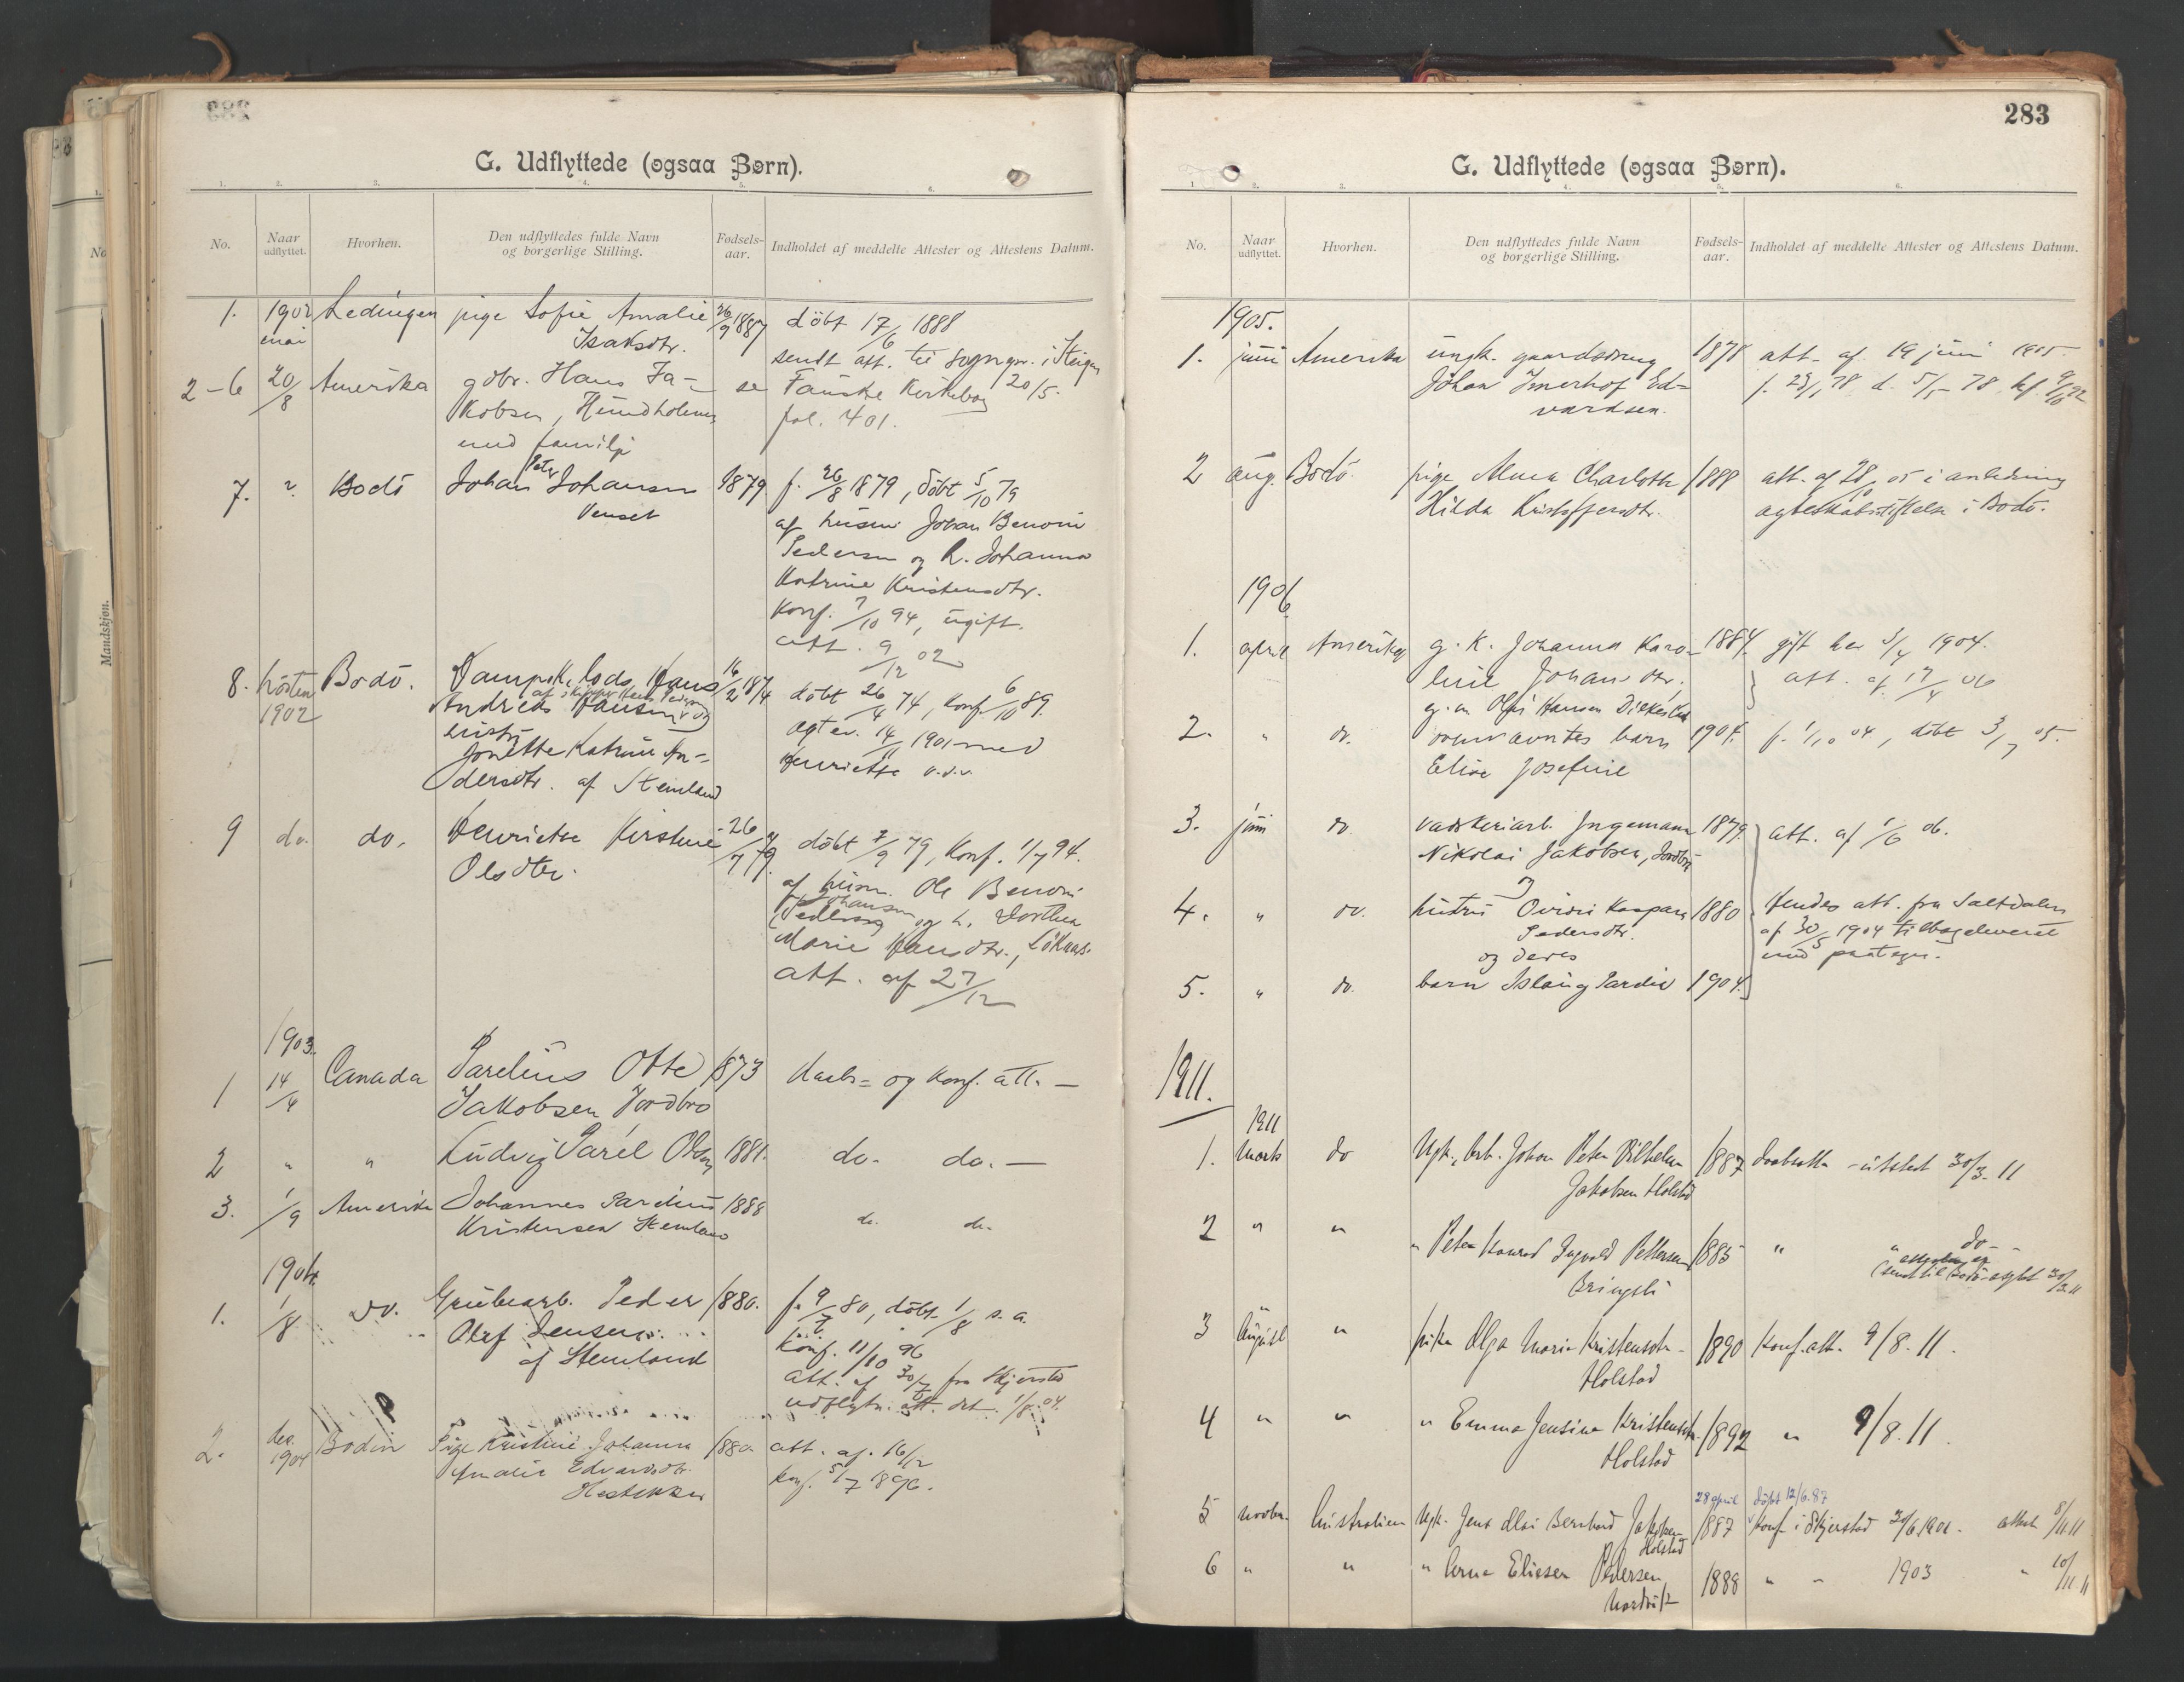 G. Udflyttede (ogsaa Børn).
1. 2. 3. 4. 5. 6.
No. Naar udflyttet. Hvorhen. Den udflyttedes fulde Navn og borgerlige Stilling. Fødsels-aar. Indholdet af meddelte Attester og Attestens Datum.
1. 1902 mai Lødingen pige Sofie Amalie 26/9 1887 döbt 17/6 1888
Isaksdtr. sendt att. til sognepr. i Steigen
2-6 20/8 Amerika gdbr. Hans Ja- se Fauske Kirkebog 20/5.
kobsen, Hundholmen fol. 401.
med familje
7. Bodö Johan Peter Johansen 1879 f. 26/8 1879, döbt 5/10 79
Venset af husm. Johan Benoni
Pedersen og h. Johanna
Katrine Kristensdtr.
Konf. 7/10 94, ugift.
att. 9/12 02
8. hösten 1902 Bodö. Dampsk. lods Hans 16/2 1874 döbt 26/4 74, konf. 6/10 89.
Andreas Hansen
hustru 14/11 1901 med
Jonette Katrine An- Henriette
dersdtr. af Stemland
9 do. do. Henriette Kirstine 26/7 79. döbt 7/9 79, Konf. 1/7 94.
Olsdtr. af husm. Ole Benoni
Johansen
(Pedersen) og h. Dorthea
Marie Hansdtr., Löknes.
att. af 27/12
1903.
1 14/4 Canada Parelius Otte 1873 Daabs- og Konf. att. —
Jakobsen Jordbro
2 " " Ludvig Parel Olsen 1881. do. do. —
3. 1/9 Amerika Johannes Pardius 1888 do. do.
Kristensen Stemland
1904.
1. 1/8 do. Grubearb. Peder 1880. f. 9/7 80, döbt 1/8 s. a.
Olaf Jensen Konf. 11/10 96
af Stemland att. af 30/7 fra Skjerstad
udflytn. att. dat. 1/8 04.
2. des. 1904 Bodin Pige Kristine Johanna 1880 att. af. 16/12
Amalie Edvardsdtr. konf. 5/7 1896.
283
G. Udflyttede (ogsaa Børn).
1. 2. 3. 4. 5. 6.
No. Naar udflyttet. Hvorhen. Den udflyttedes fulde Navn og borgerlige Stilling. Fødsels-aar. Indholdet af meddelte Attester og Attestens Datum.
1905.
1. juni Amerika ungk. gaardsdreng 1878 att. af. 19 juni 1905.
Johan Imerhof Ed-
vardsen.
2 aug. Bodö. pige Alma Charlotte 1888 att. af 28/10 05 i anledning
Hilda Kristoffersdtr. ægteskabsstiftelse i Bodö.
1906
1. april Amerika g. k. Johanna Karo- 1884 gift her 3/4 1904.
line Johansdtr. att. af 17/4 06
2. " do. barn 1904. f. 1/10 04, döbt 3/7 05.
Elise Josefine
3. juni do. vaskeriarb. Ingemann 1879. att. af 1/6 06.
Nikolai Jakobsen, Jordbro
og
4. " do. hustru Kaspara 1880 Hendes att. fra Saltdalen
Pedersdtr. af 30/5 1904 tilbageleveret
og deres med paategn.
5. " do. barn Aslaug Pardie 1904.
1911.
1911
1. Marts do Ugk., Arb. Johan Peter Vilhelm 1887 daabsatt. - utstedt 30/3. 11
Jakobsen Holstad
2 " " " Peter Konrad Ingvald Pettersen 1885 " " do -
Bringsli (sendt til Bodö 30/3.11
3 August " pike Olga Marie Kristensdtr. 1890 Konf. att. 9/8. 11.
Holstad
4 " " " Emma Jensine Kristensdtr. 1892 " 9/8. 11.
Holstad
28 april döbt 12/6. 87
5 Novbr. Australien Ugk. Jens Bernhard Jakobsen 1887 Konf. i Skjerstad 1901. attest 8/11.11
Holstad
6 " " " Arne Eliesen Pedersen 1888 " " 1903 " 10/11 11
Nordvik
Mandskjøn.